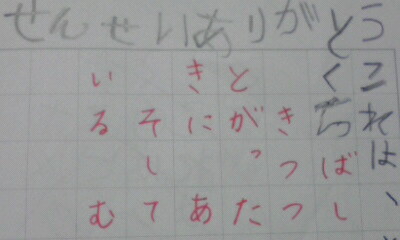 せんせいありがとう
これは、
くちばし
きつつ
とがった
きに　あ
そして
いる　む